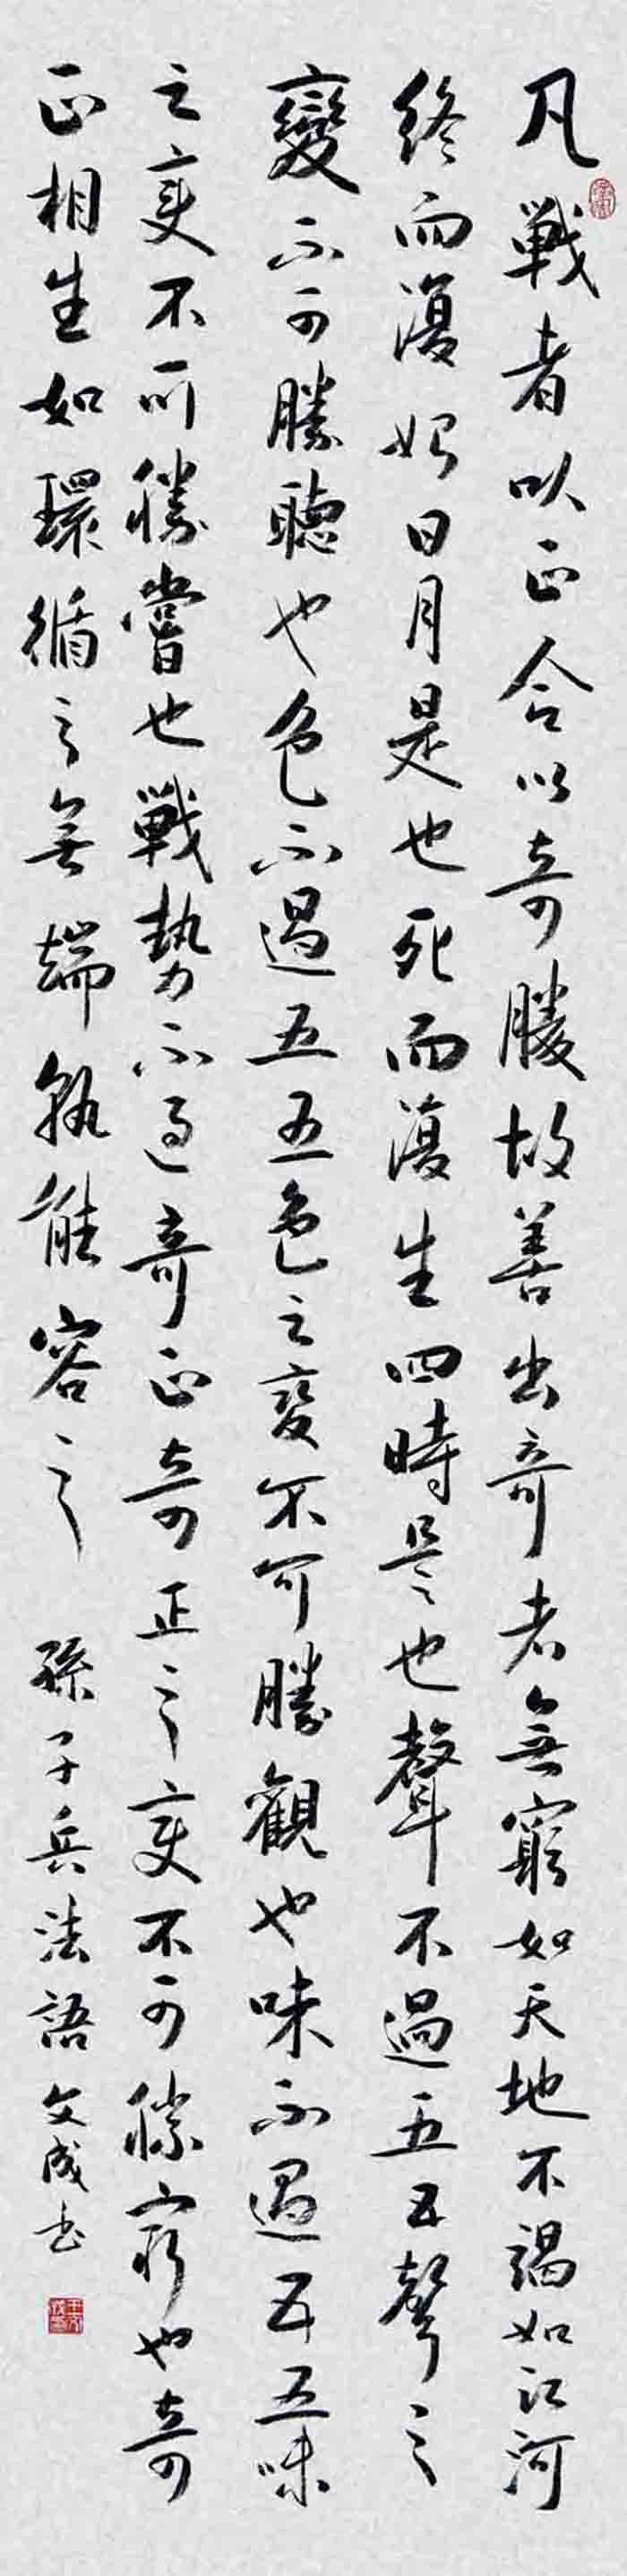 凡戰者以正合以奇勝故善出奇者無窮如天地不竭如江河
終而復始日月是也死而復生四時是也聲不過五五聲之
變不可勝聽也色不過五五色之變不可勝觀也味不過五五味
之變不可勝嘗也戰勢不過奇正奇正之變不可勝窮也奇
正相生如環循之無端孰能容之 孫子兵法語 文成书